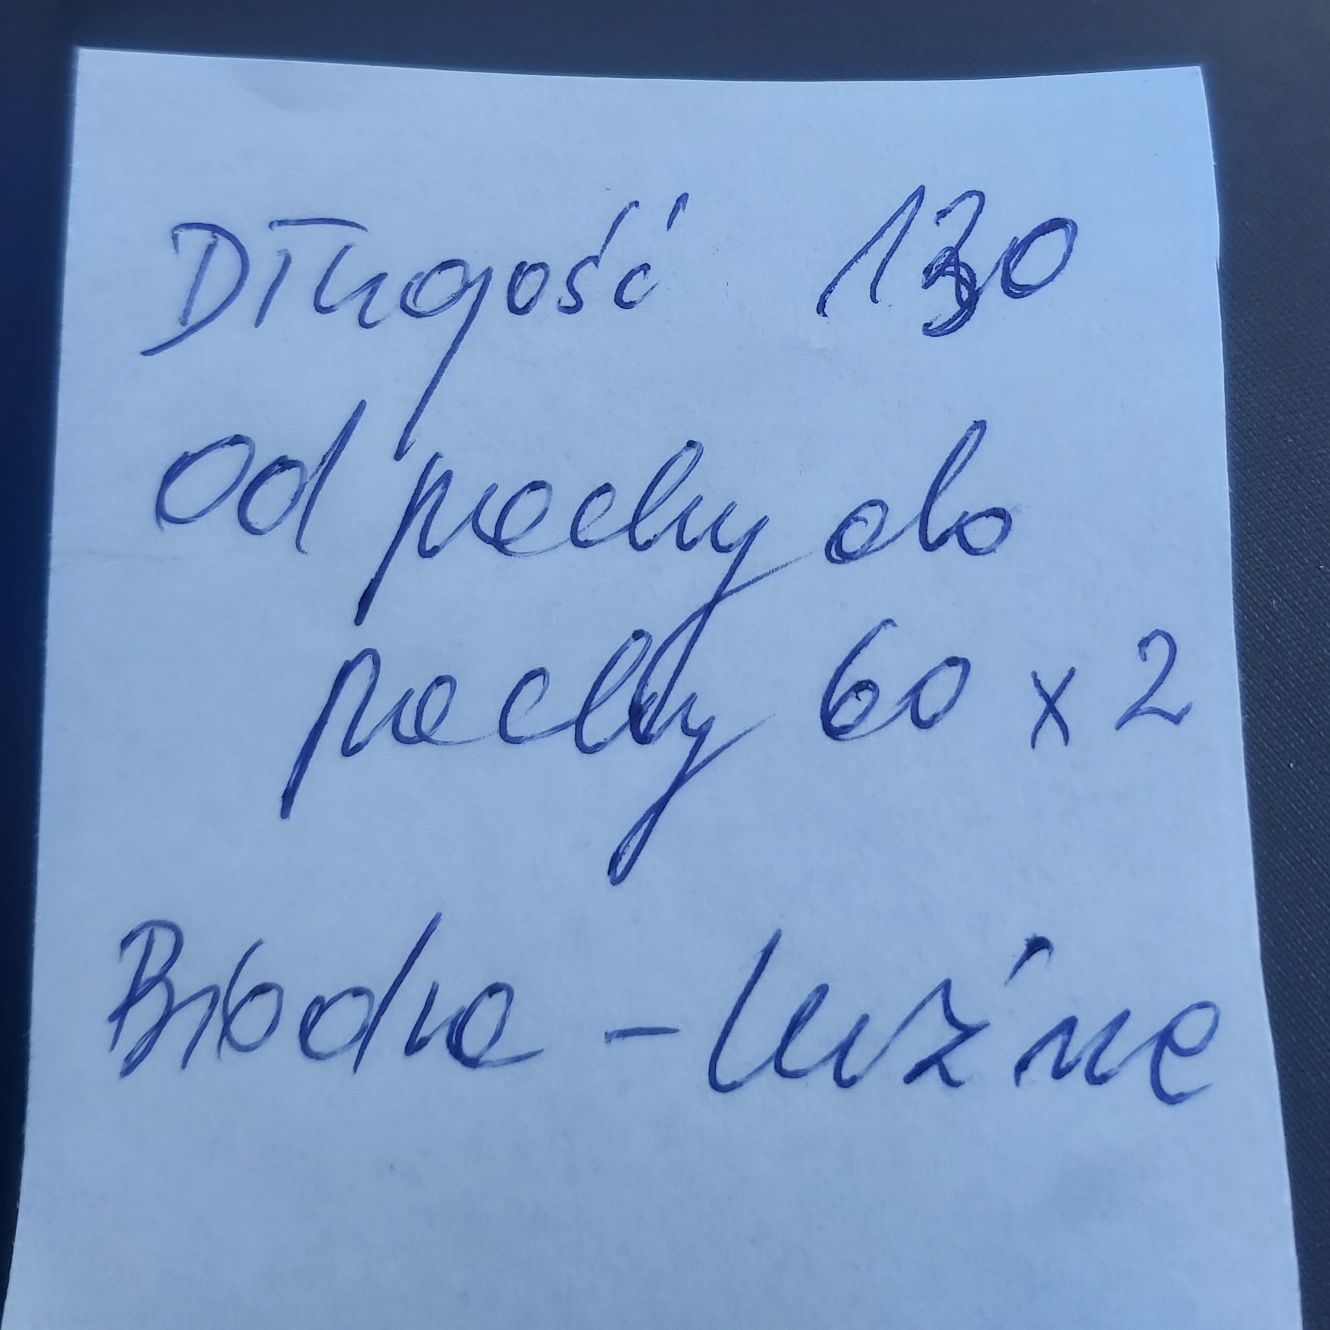 Długość 130
od pachy do
pachy 60 x 2
Biodra - luźne